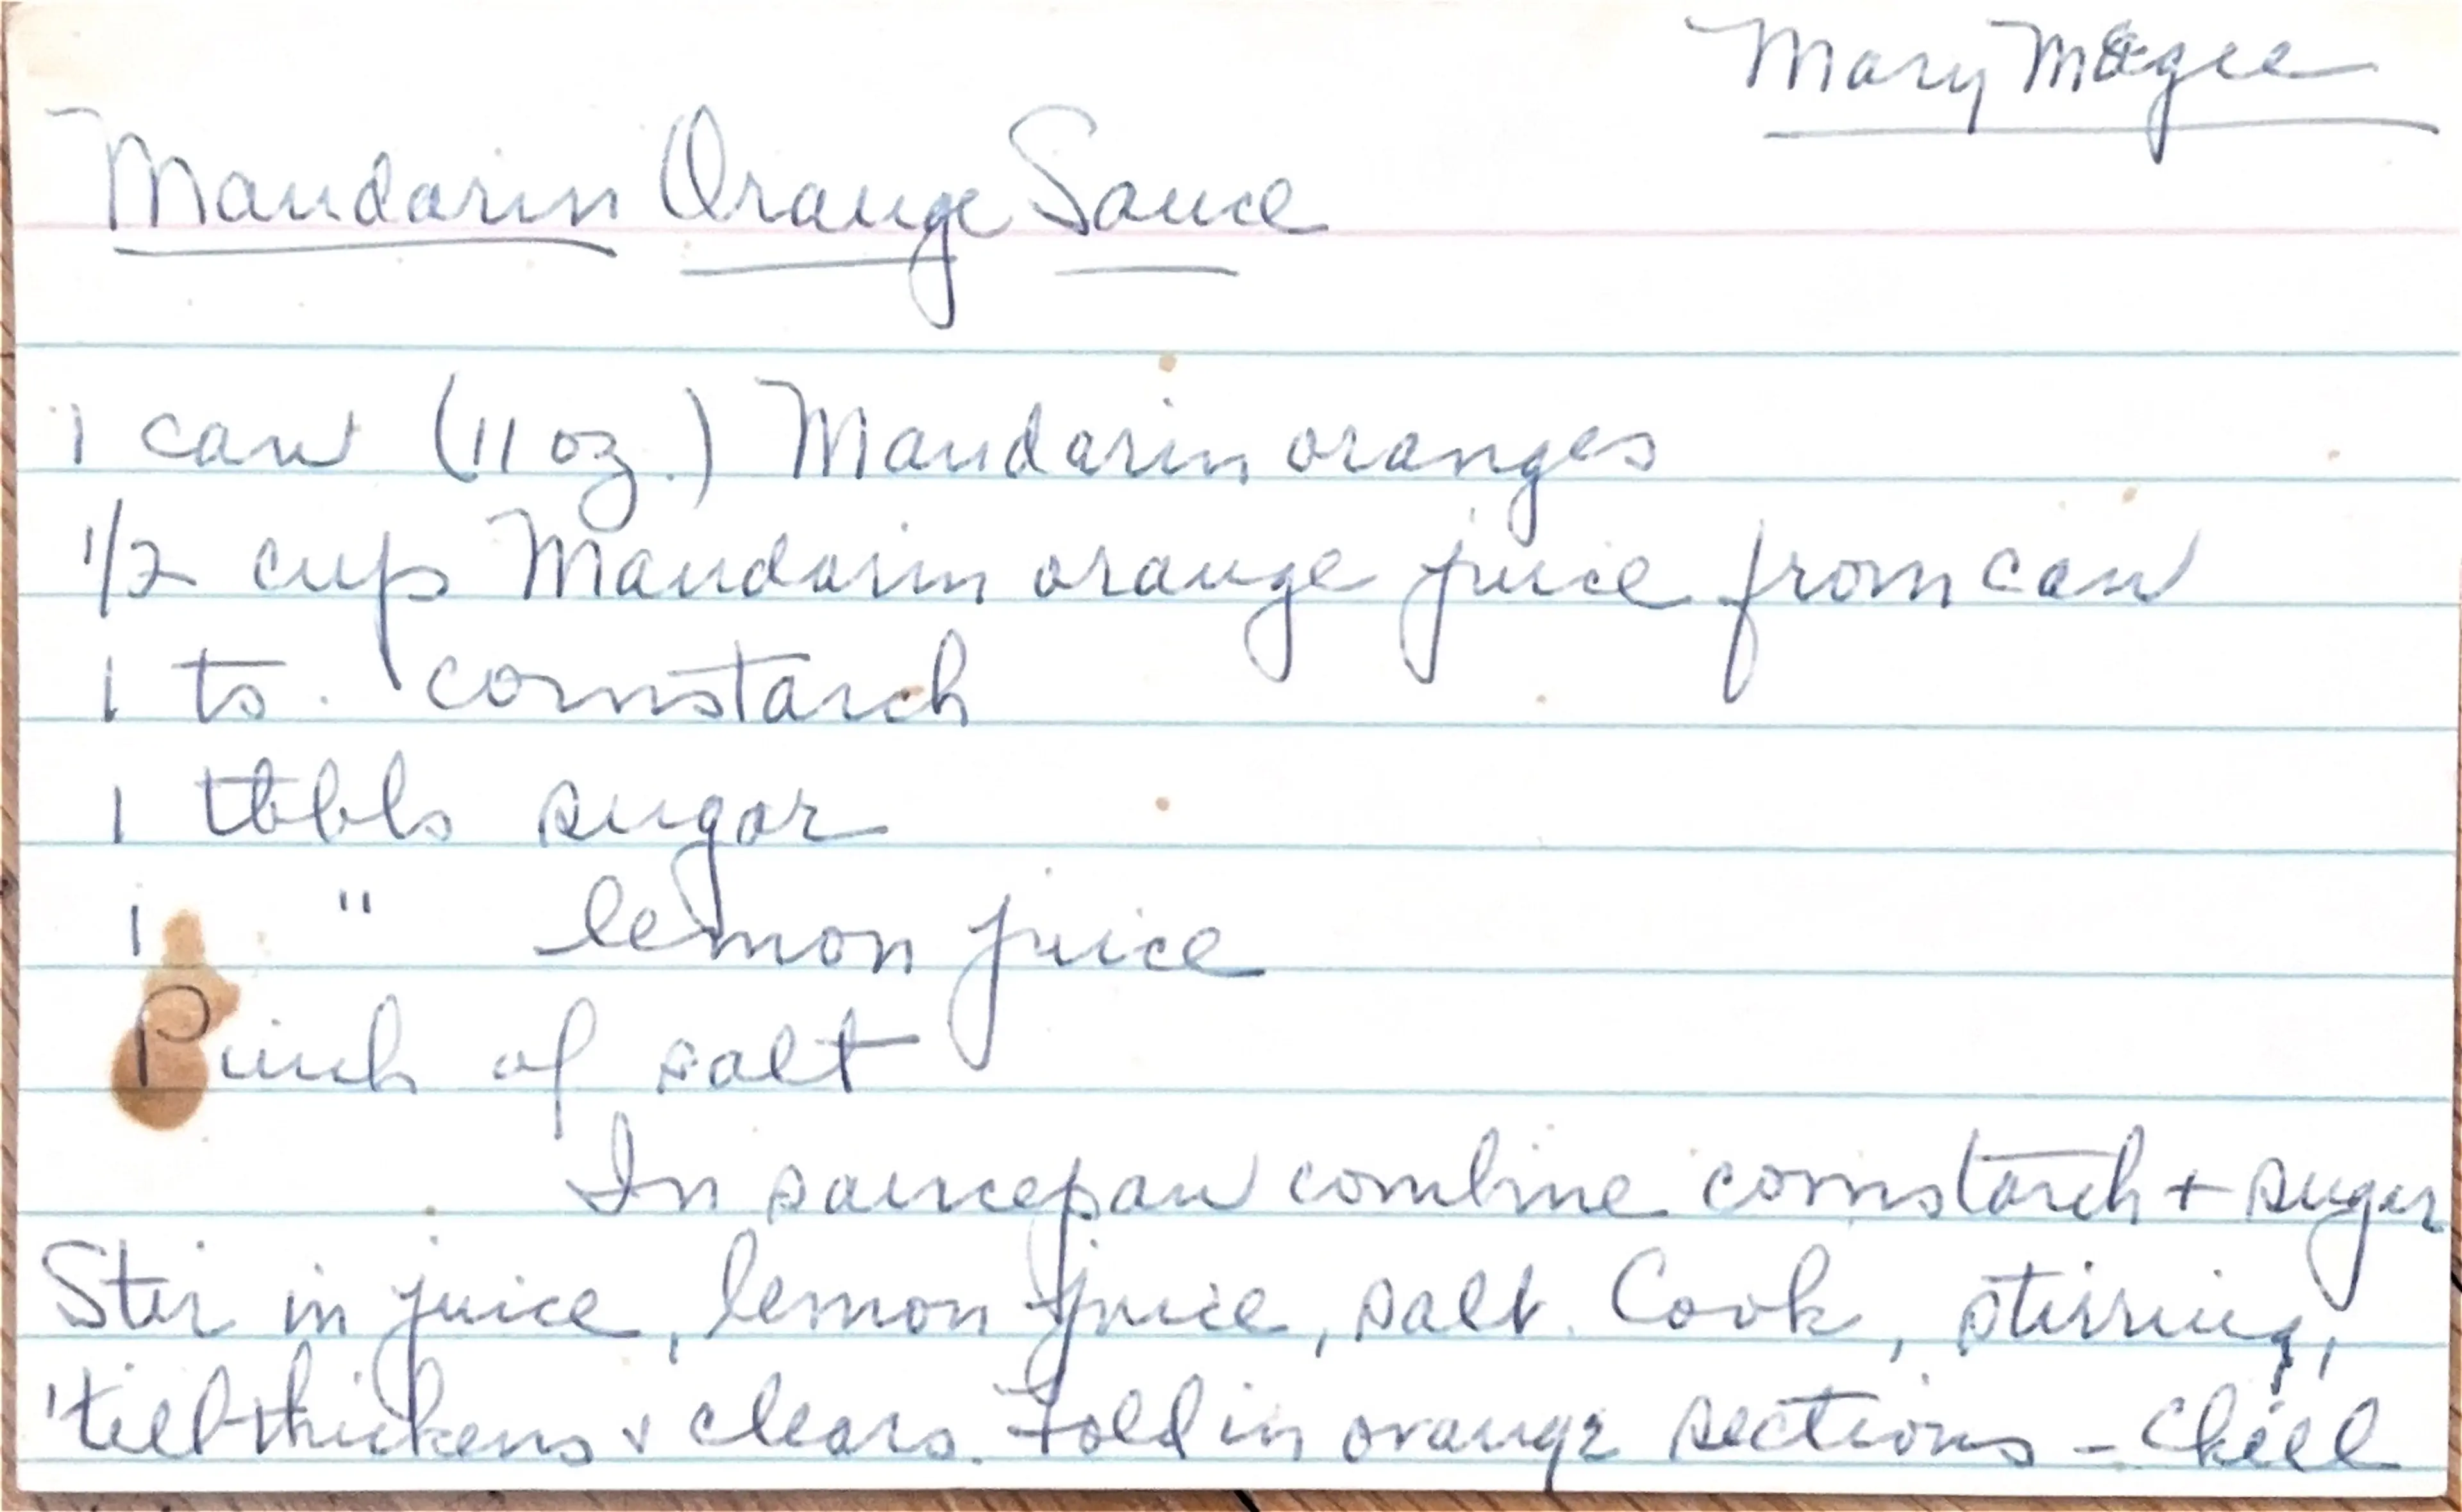 Mary Magee
Mandarin Orange Sauce
1 can (11 oz.) Mandarin oranges
1/2 cup Mandarin orange juice from can
1 ts. cornstarch
1 tbbls sugar
1 " lemon juice
Pinch of salt
In saucepan combine cornstarch + sugar
Stir in juice, lemon juice, salt. Cook, stirring,
'till thickens & clears. Fold in orange sections - Chill